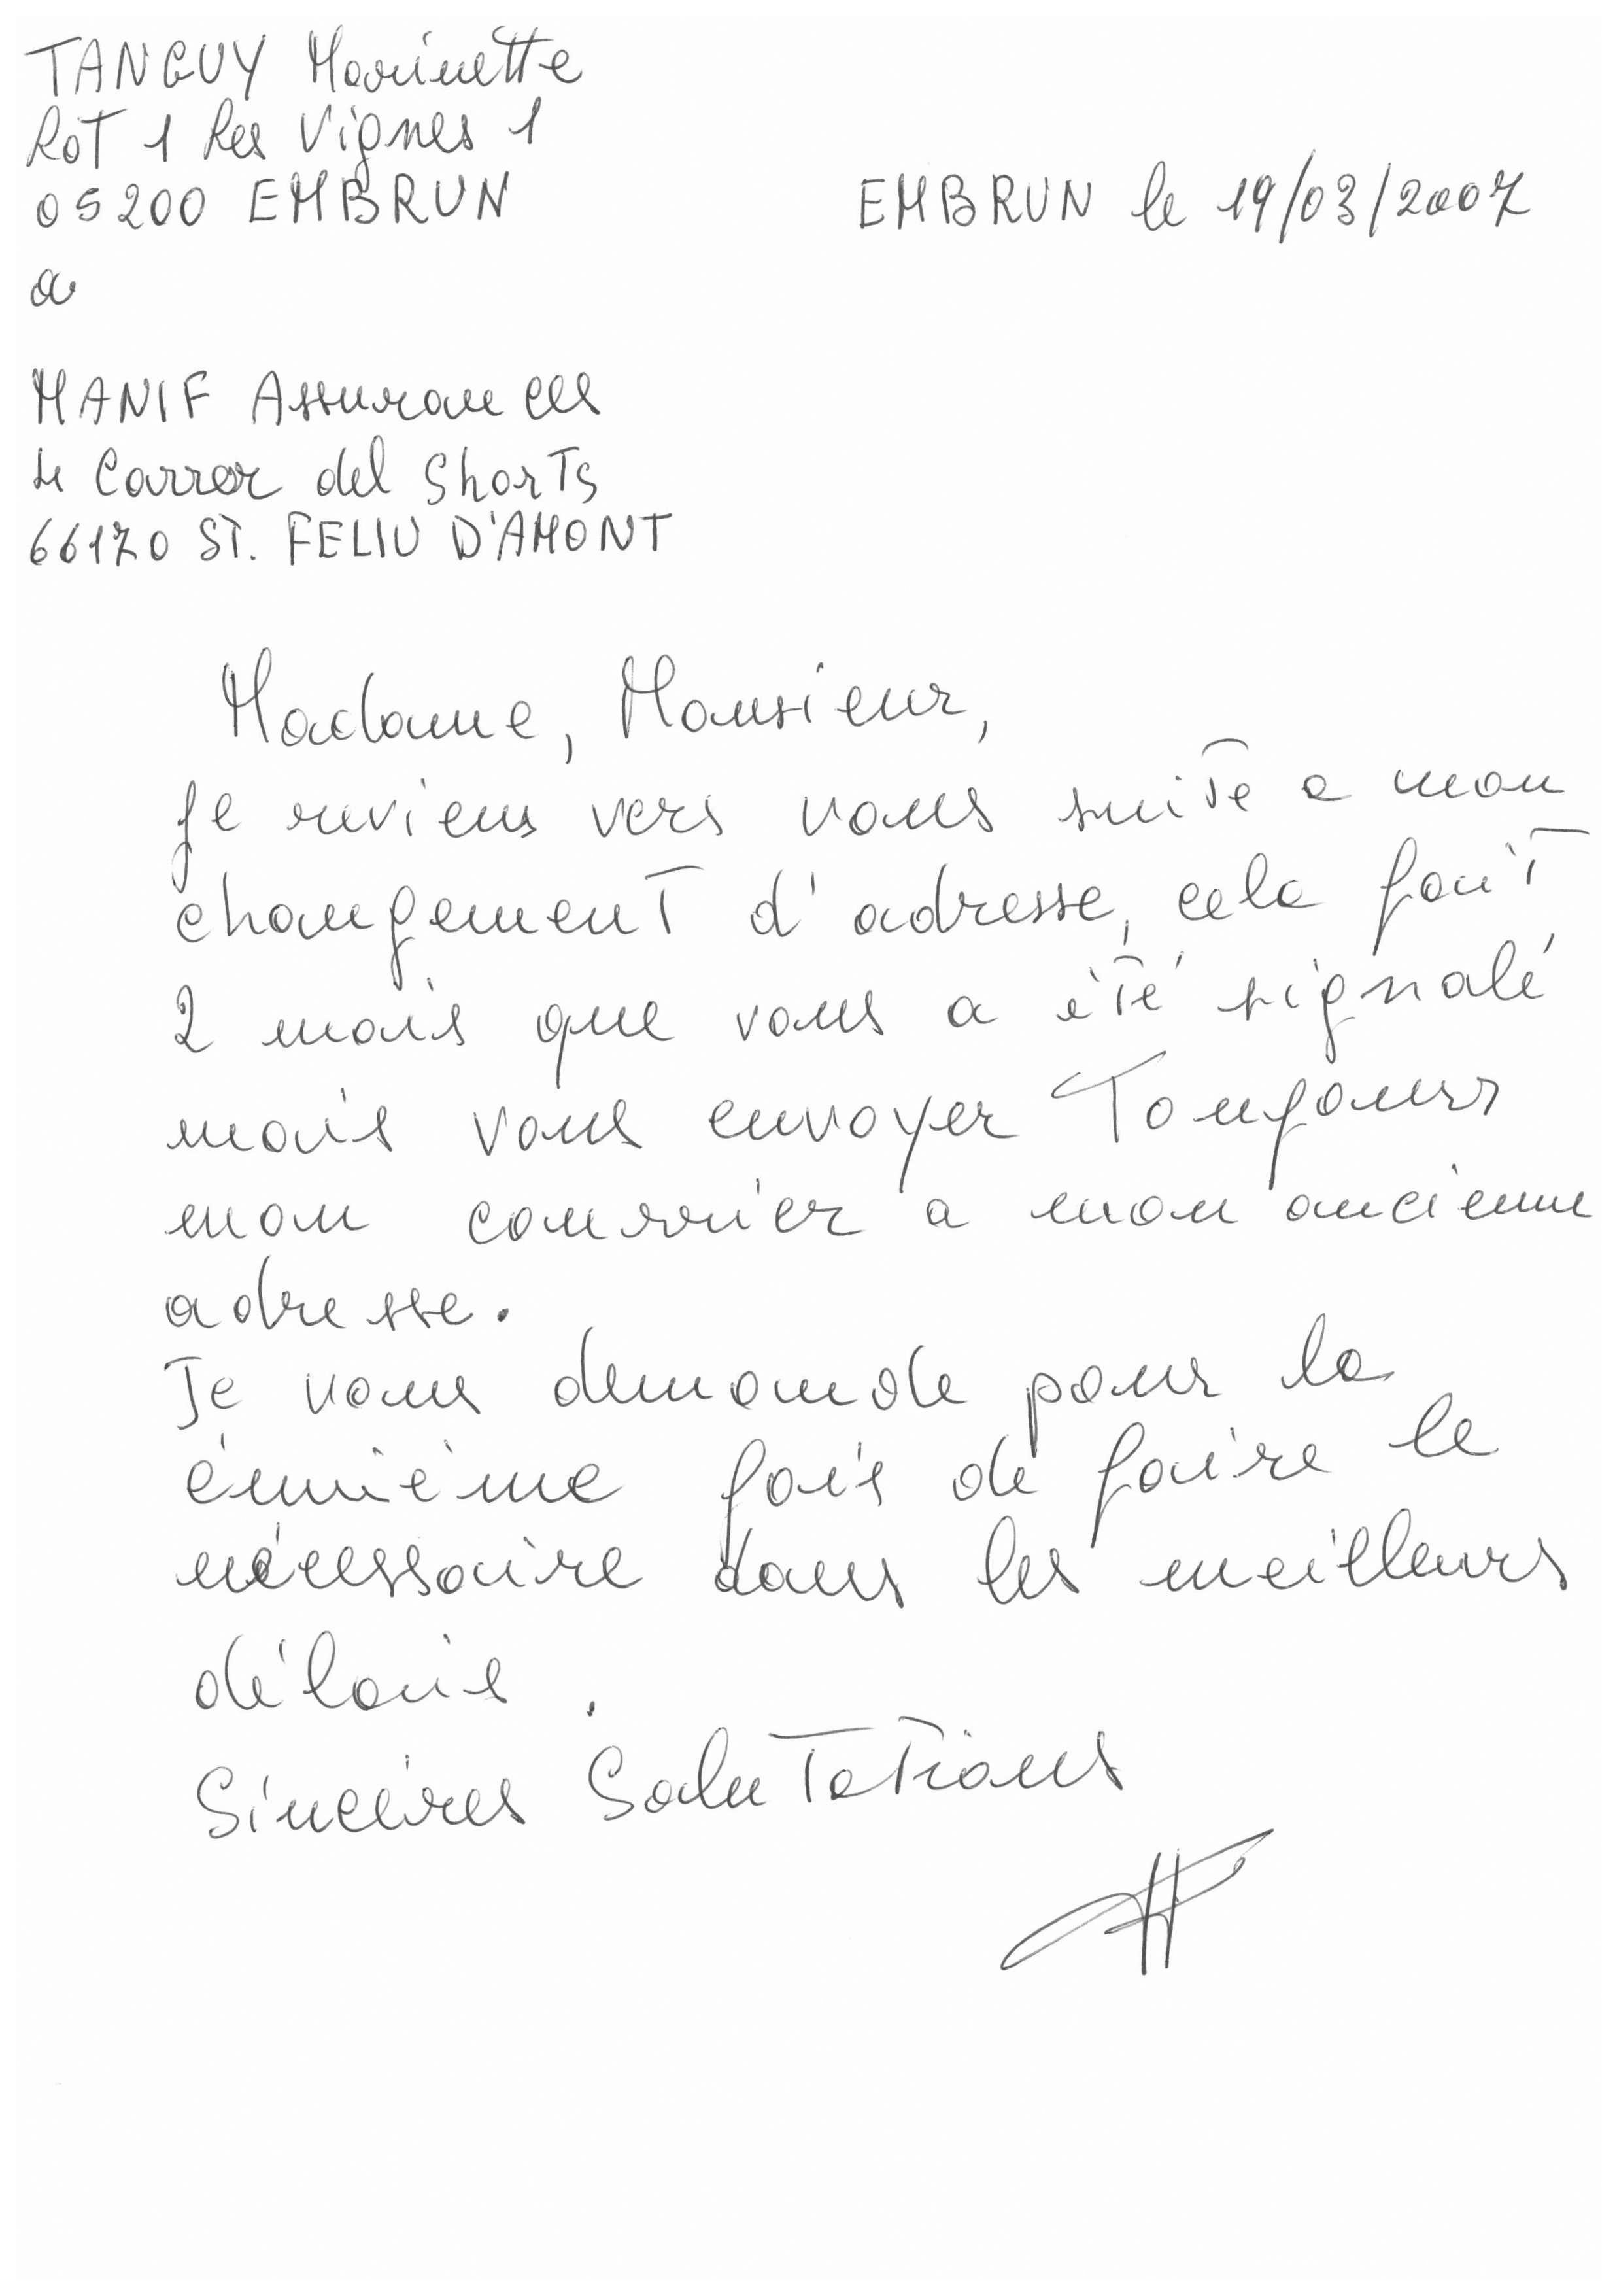 TANGUY Marinette
Lot 1 Les Vignes 1
05200 EMBRUN
EMBRUN le 19/03/2007
a
MANIF Assurances
4 Carrer del Shorts
66170 ST. FELIU D'AMONT
Madame, Monsieur,
je reviens vers vous suite a mon
changement d'adresse, cela fait
2 mois que vous a été signalé
mais vous envoyer Toujours
mon courrier a mon ancienne
adresse.
Je vous demande pour la
énnième fois de faire le
nécessaire dans les meilleurs
délais.
Sincères Salutations